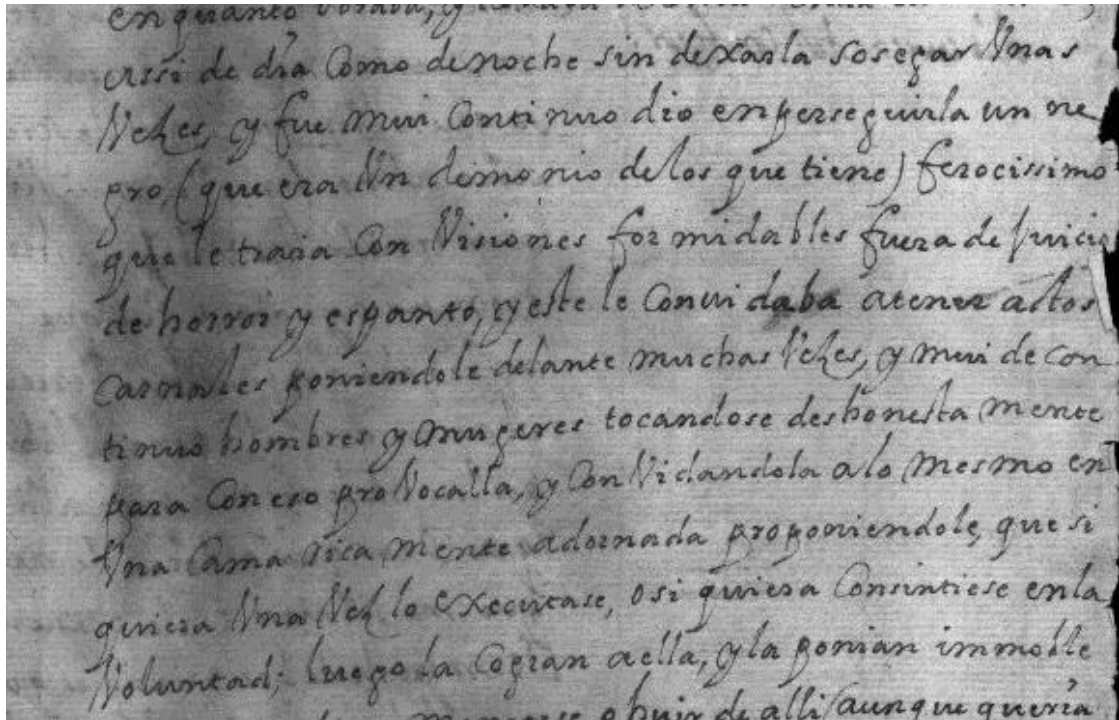 en quanto
assi de dia Como de noche sin dexarla sosegar Unas
Vezes, y fue mui Continuo dio en perseguirla un ne
gro, (que era Un demonio de los que tiene) ferocissimo
que le traia Con Visiones formidables fuera de juicio
de horror y espanto, y este le Convidaba a tener actos
Carnales poniendole delante muchas Vezes, y mui de con
tinuo hombres y mugeres tocandose deshonesta mente
para Con eso proVocalla, y ConVidandola a lo mesmo en
Una Cama rica mente adornada proponiendole, que si
quiera Una Vez lo executase, o si quiera Consintiese en la
Voluntad; luego la Cogian a ella, y la ponian immoble
o huir de alli (aunque queria